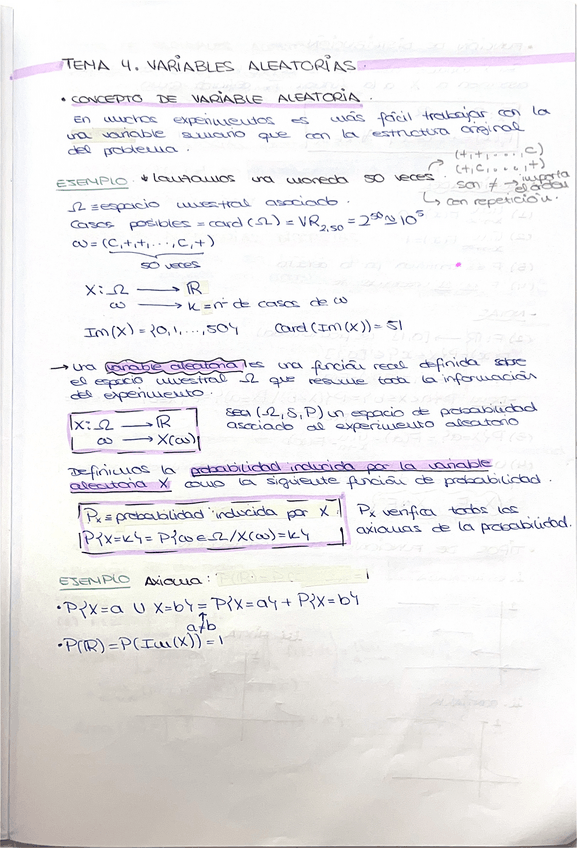 TEMA 4. VARIABLES ALEATORIAS.
• CONCEPTO DE VARIABLE ALEATORIA.
En muchos experimentos es más fácil trabajar con la
una variable sumario que con la estructura original
del problema.
EJEMPLO * Lanzamos una moneda 50 veces.
(+,+,...,C)
(+,C,...,+)
son ≠ → importa el orden
↳ con repetición.
Ω ≡ espacio muestral asociado.
Casos posibles = card(Ω) = VR2,50 = 2^50 ≅ 10^5
ω = (C,+,+,...,C,+)
50 veces
X: Ω → ℝ
ω → k = nº de casos de ω
Im(X) = {0,1,...,50} Card(Im(X)) = 51
→ Una variable aleatoria es una función real definida sobre
el espacio muestral Ω que resume toda la información
del experimento.
X: Ω → ℝ
ω → X(ω)
sea (Ω, S, P) un espacio de probabilidad
asociado al experimento aleatorio
Definimos la probabilidad inducida por la variable
aleatoria X como la siguiente función de probabilidad.
Px ≡ probabilidad inducida por X
P{X=k} = P{ω ∈ Ω / X(ω)=k}
Px verifica todos los
axiomas de la probabilidad.
EJEMPLO Axioma:
• P{X=a ∪ X=b} = P{X=a} + P{X=b}
a≠b
• P(ℝ) = P(Im(X)) = 1